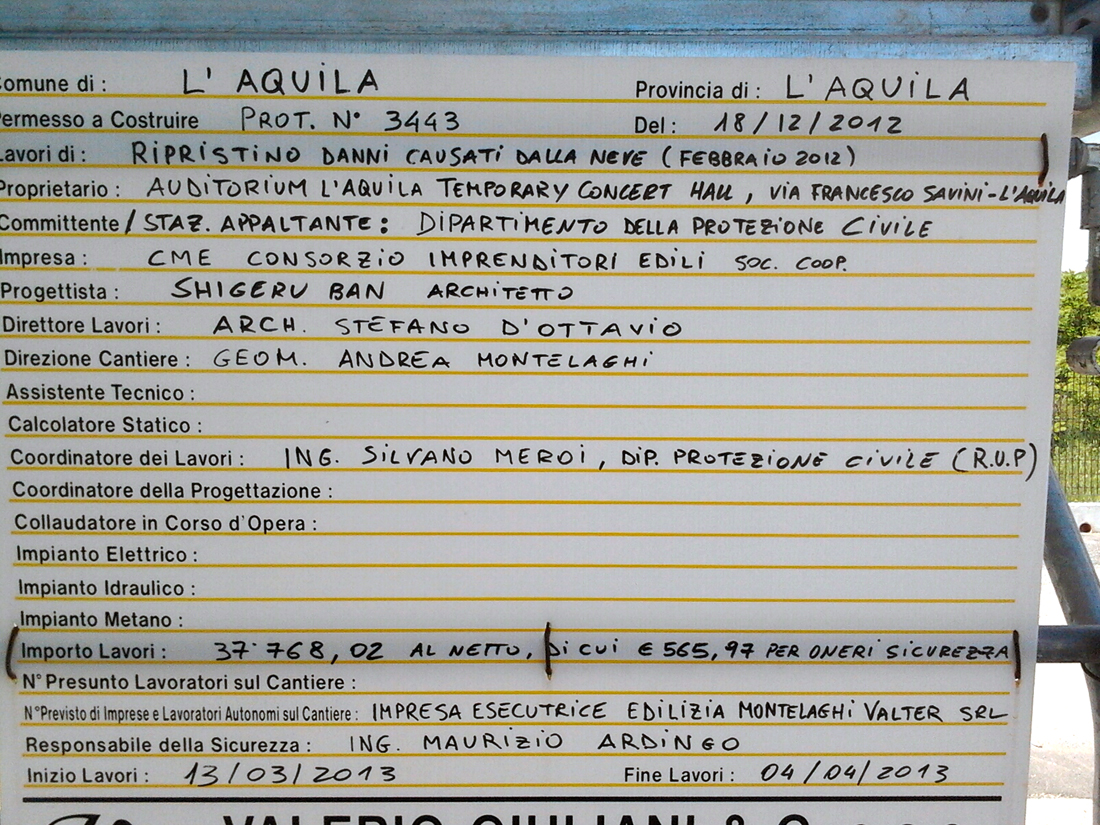 Comune di : L' AQUILA Provincia di : L'AQUILA
Permesso a Costruire PROT. N° 3443 Del : 18/12/2012
Lavori di : RIPRISTINO DANNI CAUSATI DALLA NEVE (FEBBRAIO 2012)
Proprietario : AUDITORIUM L'AQUILA TEMPORARY CONCERT HALL, VIA FRANCESCO SAVINI-L'AQUILA
Committente / STAZ. APPALTANTE: DIPARTIMENTO DELLA PROTEZIONE CIVILE
Impresa : CME CONSORZIO IMPRENDITORI EDILI SOC. COOP.
Progettista : SHIGERU BAN ARCHITETTO
Direttore Lavori : ARCH. STEFANO D'OTTAVIO
Direzione Cantiere : GEOM. ANDREA MONTELAGHI
Assistente Tecnico :
Calcolatore Statico :
Coordinatore dei Lavori : ING. SILVANO MEROI, DIP. PROTEZIONE CIVILE (R.U.P)
Coordinatore della Progettazione :
Collaudatore in Corso d'Opera :
Impianto Elettrico :
Impianto Idraulico :
Impianto Metano :
Importo Lavori : 37˙768,02 AL NETTO, DI CUI € 565,97 PER ONERI SICUREZZA
N° Presunto Lavoratori sul Cantiere :
N° Previsto di Imprese e Lavoratori Autonomi sul Cantiere : IMPRESA ESECUTRICE EDILIZIA MONTELAGHI VALTER SRL
Responsabile della Sicurezza : ING. MAURIZIO ARDINGO
Inizio Lavori : 13/03/2013 Fine Lavori : 04/04/2013
VALERIO GIULIANI &